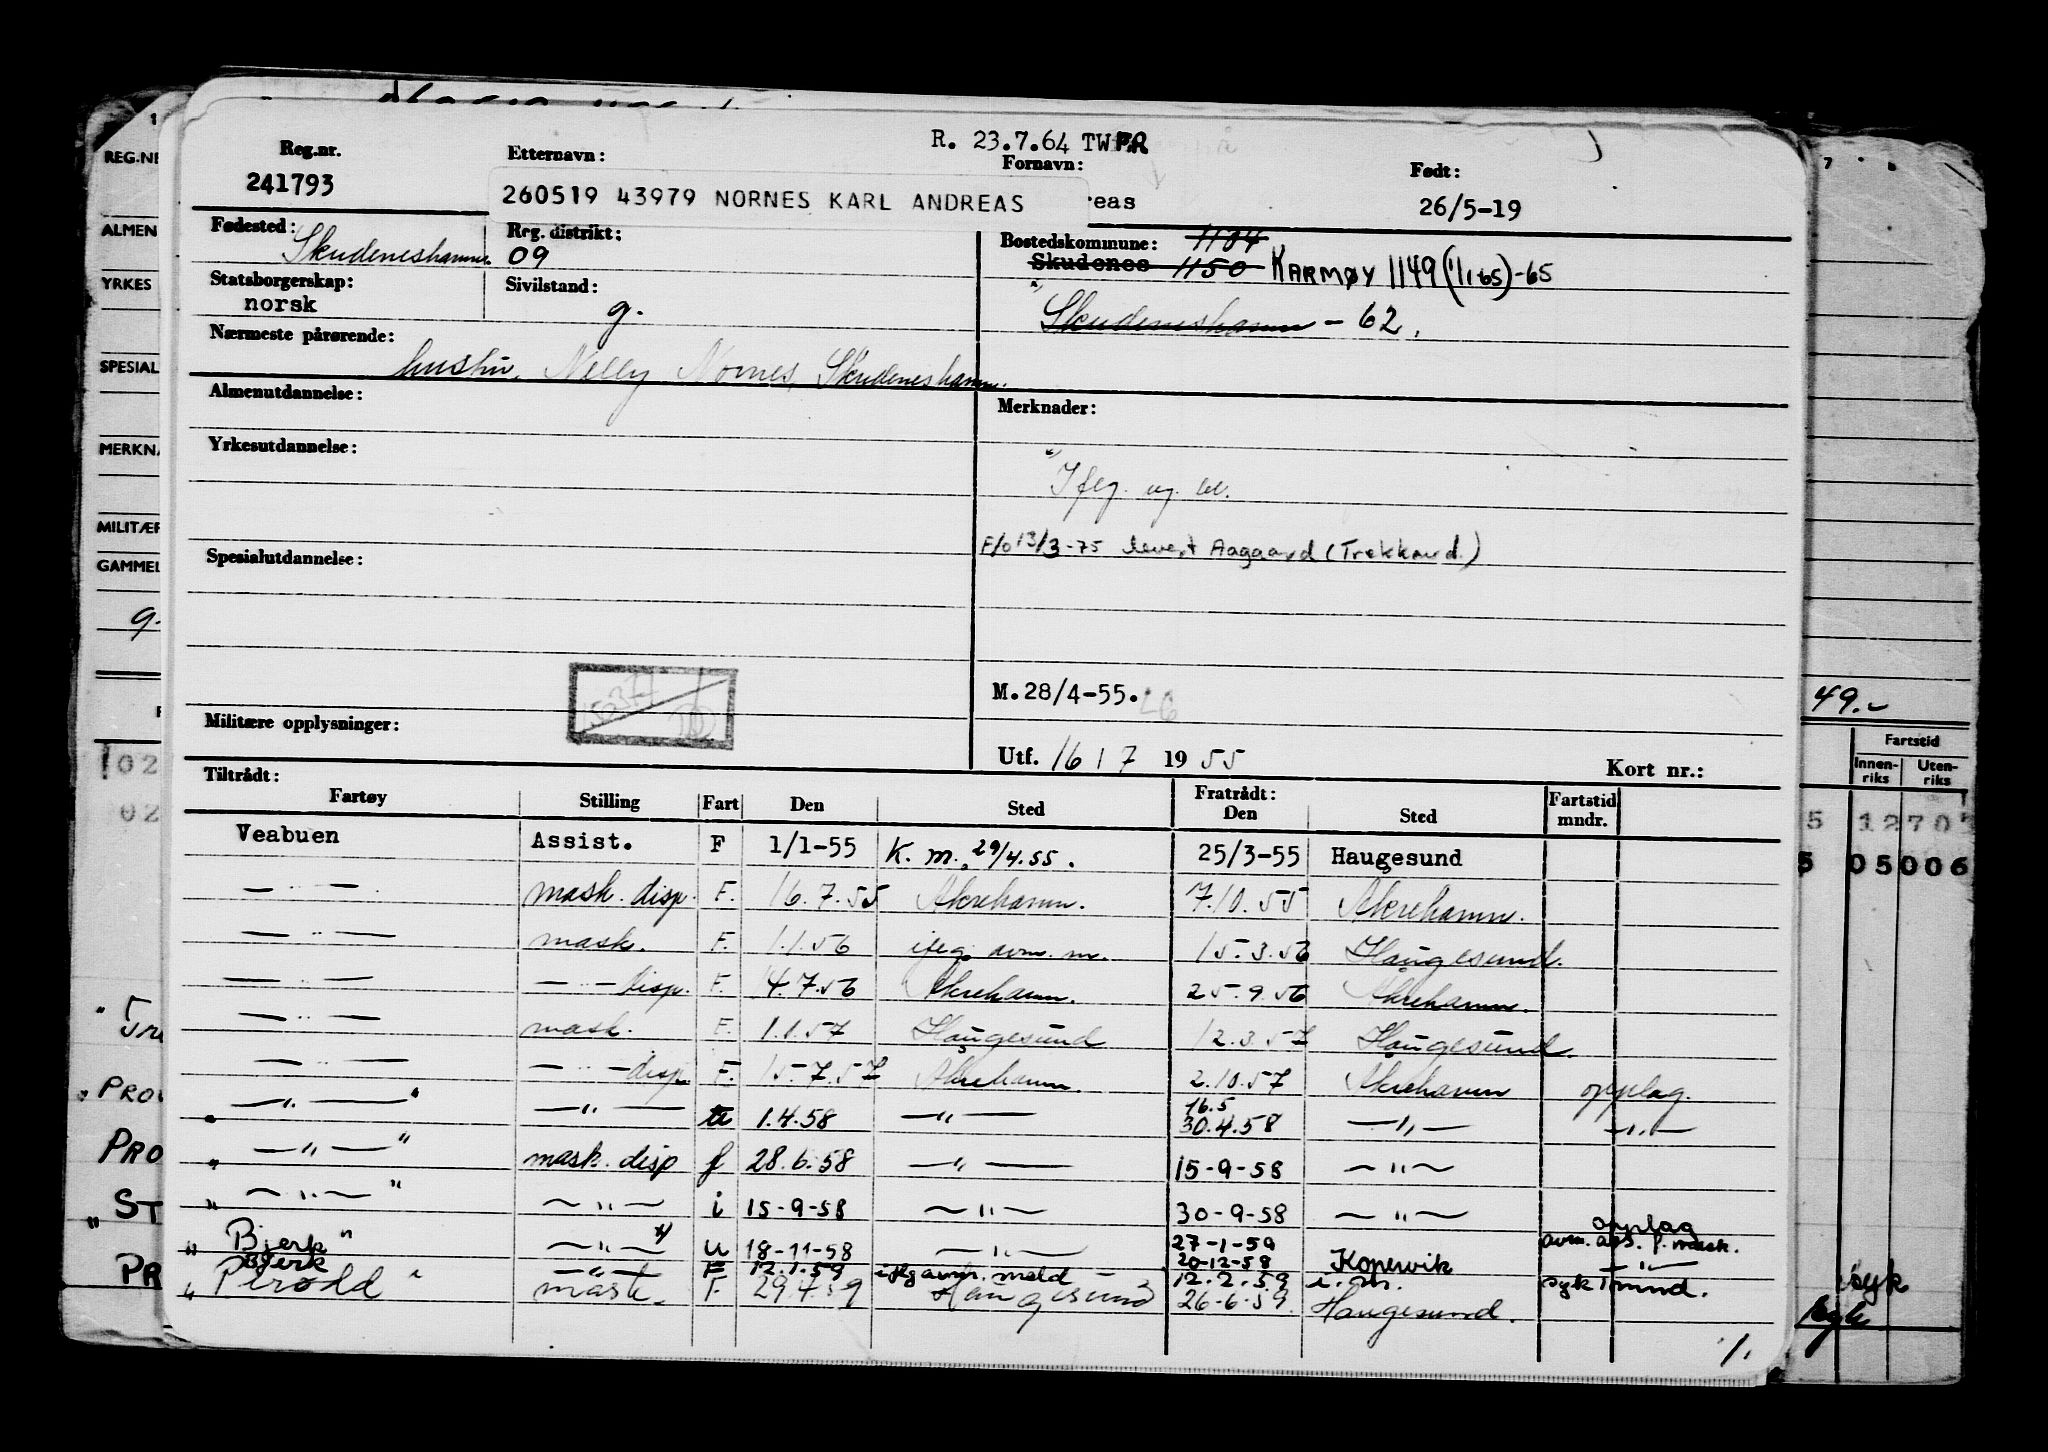 R. 23.7.64 TW
Reg.nr. Etternavn: Fornavn: Født:
241793 260519 43979 NORNES KARL ANDREAS reas 26/5-19
Fødested: Skudeneshamn. Reg. distrikt: 09 Bostedskommune: 1104
Skudenes 1150 KARMØY 1149 (1/1 65)-65
Statsborgerskap: norsk Sivilstand: g. Skudeneshamn - 62.
Nærmeste pårørende: hustru, Nelly Nornes, Skudeneshamn.
Almenutdannelse: Merknader:
Yrkesutdannelse:
F/o 13/3-75 levert Aagaard (Trekkavd.)
Spesialutdannelse:
M.28/4-55.
Militære opplysninger: Utf. 16 / 7 1955 Kort nr.:
Tiltrådt: Fratrådt:
Fartøy Stilling Fart Den Sted Den Sted Fartstid mndr.
Veabuen Assist. F 1/1-55 K. m. 29/4.55. 25/3-55 Haugesund
— " — mask. disp. F. 16.7.55 Åkrehamn. 7.10.55 Åkrehamn.
— " — mask. F. 1.1.56 ifeg. avm. m. 15.3.56 Haugesund.
— " — — " — disp. F. 4.7.56 Åkrehamn. 25.9.56 Åkrehamn.
— " — mask. F. 1.1.57 Haugesund 12.3.57 Haugesund.
— " — — " — disp. F. 15.7.57 Åkrehamn. 2.10.57 Åkrehamn opplag.
— " — — " — 1.4.58 — " — 16.5 30.4.58 — " — — " —
— " — mask. disp f 28.6.58 — " — 15-9-58 — " —
— " — — " — i 15-9-58 — " — 30-9-58 — " — opplag
Bjerk — " — u 18-11-58 — " — 27-1-59 20-12-58 Kopervik
Bjerk — " — F 12.1.59 ifeg avm. meld 12.2.59 syk 1 mnd.
Perodd mask. F. 29.4.59 Haugesund 26-6-59. Haugesund.
REG.NR
ALMEN
YRKES
SPESIAL
MERKNA
MILITÆR
GAMMEL
g.
02
02
PRO
PRO
ST
PR
7 8
49.-
Fartstid
Innenriks Utenriks
5 12705
5 05006
syk
1.